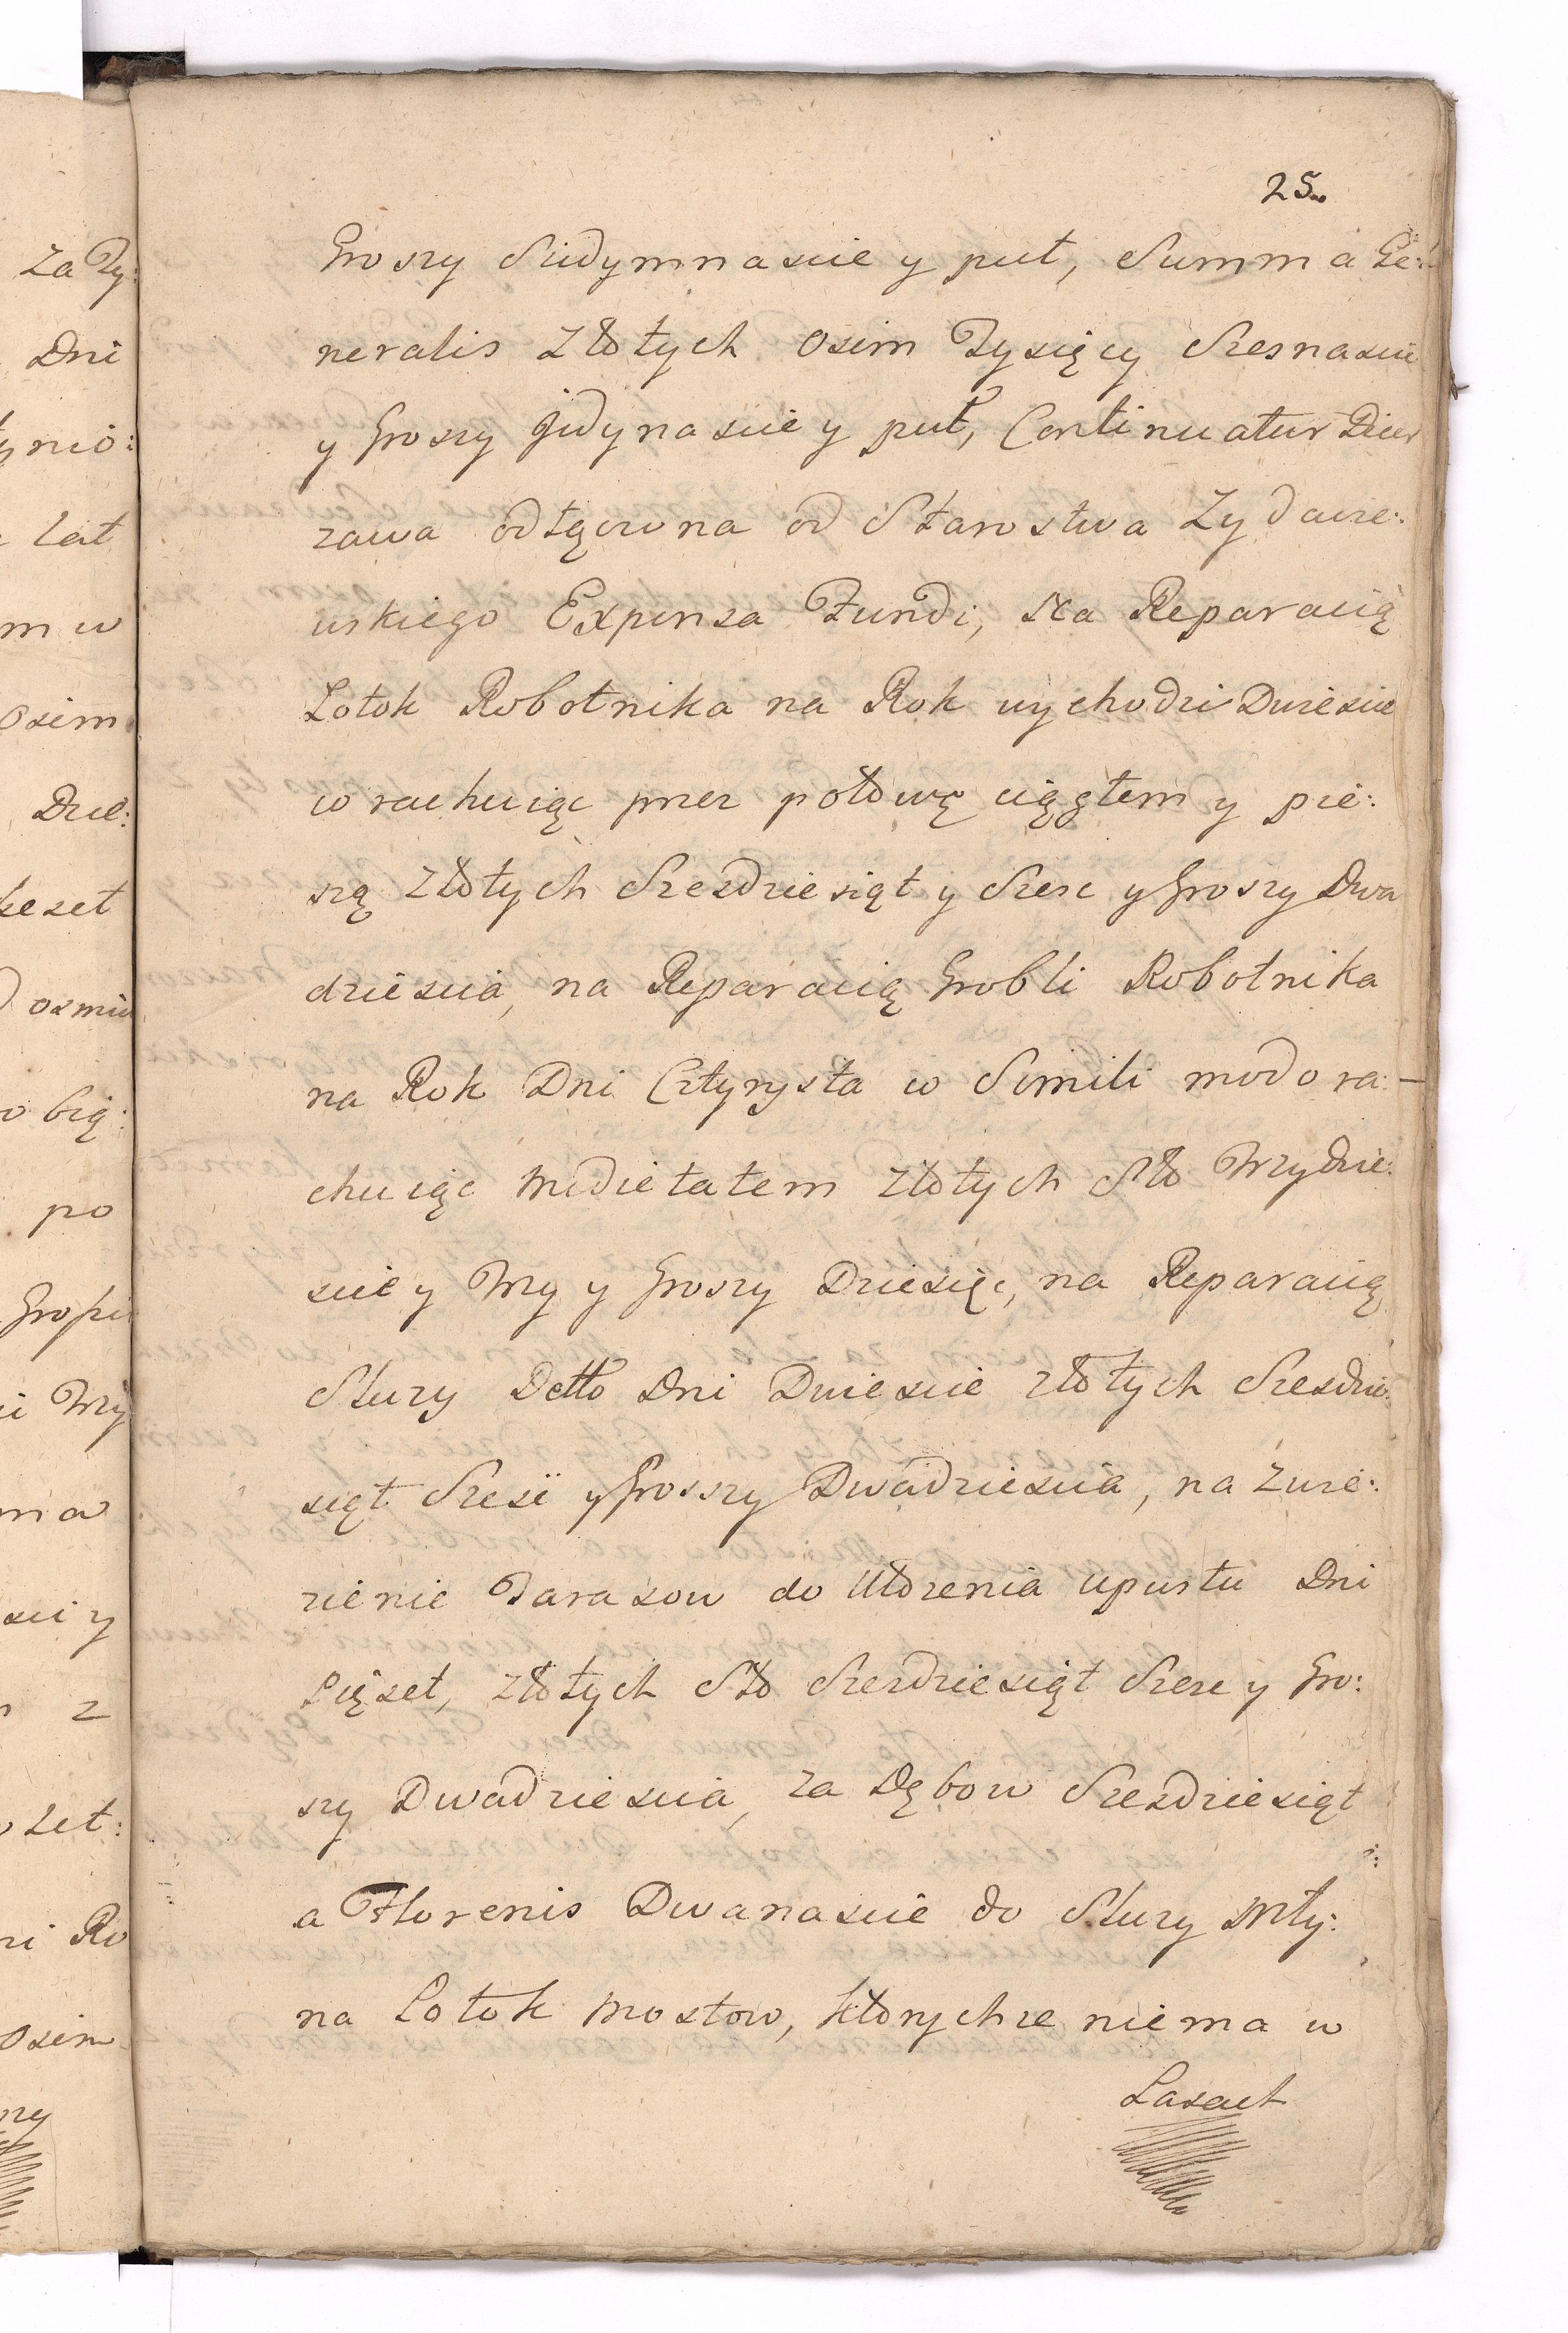 25.
Groszy Siedymnascie y puł, Summa Ge:
neralis Złotych Osim Tysięcy Szesnascie
y Groszy Jedynascie y puł, Continuatur Dzier
zawa odłączona od Starostwa Zydacze:
wskiego Expensa Fundi, Na Reparacią
Lotok Robotnika na Rok wychodzi Dwiescie
co rachuiąc przez połowę ciągłem y pie:
szą Złotych Szezdziesiąt y Szesc y Groszy Dwa
dziescia, na Reparacią Grobli Robotnika
na Rok Dni Cztyrysta co Simili modo ra:
chuiąc medietatem Złotych Sto Trzydzie:
scie y Trzy y Groszy Dziesięc, na Reparacią
Sluzy Detto Dni Dwiescie złotych Szesdzie:
siąt Szesc y Groszy Dwadziescia, na Zwie:
zienie Tarasow do Utozenia upustu Dni
Pięset, złotych Sto Szezdziesiąt Szesc y Gro:
szy Dwadziescia, za Dębow Szezdziesiąt
a Florenis Dwanascie do Sluzy Mły:
na Lotok mostow, ktorychze niema w
Lasach
Za Ty:
Dni
nio:
lat
m w
Osim
Dzie:
set
osmiu
bią:
po
Groszy
Trzy
na
sci y
z
zet:
ni Ro
Osim